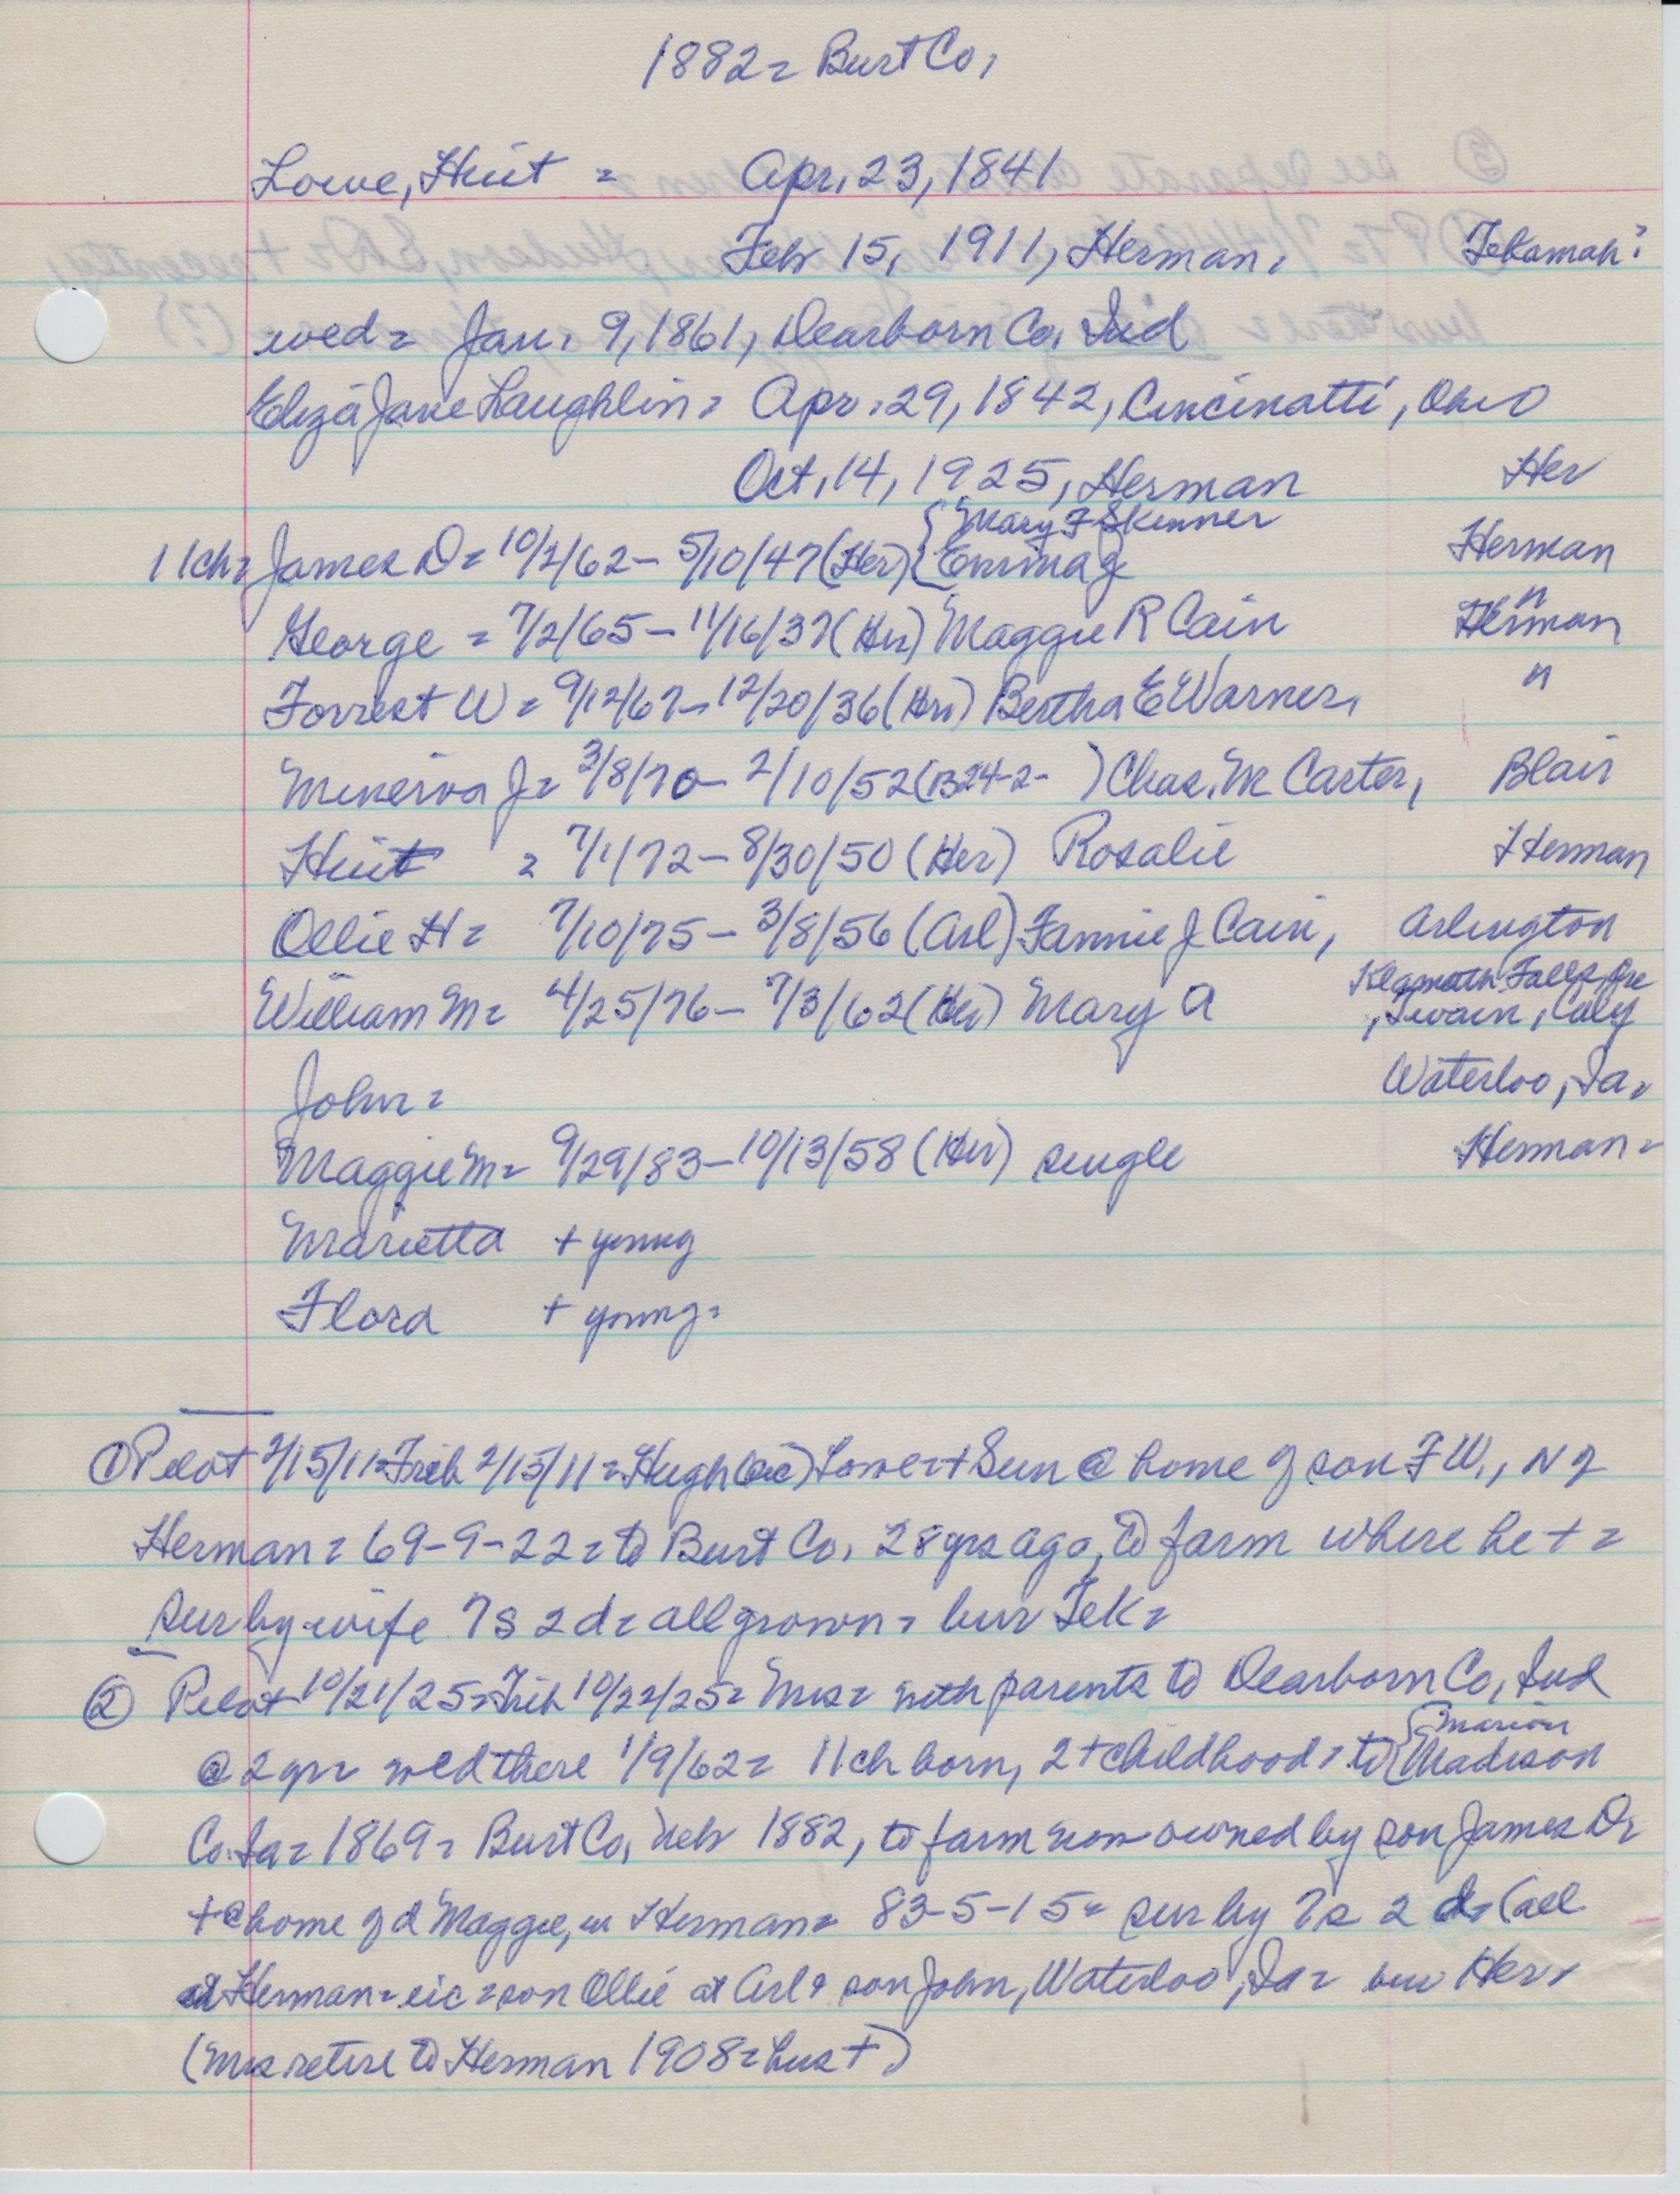 1882 = Burt Co.
Lowe, Huit = Apr. 23, 1841
Feb 15, 1911, Herman. Tekamah?
wed = Jan. 9, 1861, Dearborn Co. Ind
Eliza Jane Laughlin = Apr. 29, 1842, Cincinatti, Ohio
Oct. 14, 1925, Herman Her
{Mary F Skinner
11ch = James D = 10/2/62 - 5/10/47 (Her) {Emma J Herman
George = 7/2/65 - 11/16/37 (Her) Maggie R Cain Herman "
Forrest W = 9/12/67 - 12/20/36 (Her) Bertha E Warner. "
Minerva J = 3/8/70 - 2/10/52 (B24-2- ) Chas. M Carter, Blair
Huit = 7/1/72 - 8/30/50 (Her) Rosalie Herman
Ollie H = 7/10/75 - 3/8/56 (Arl) Fannie J Cain, Arlington
Klamath Falls, Ore
William M = 4/25/76 - 7/3/62 (Her) Mary A , Calif
John = Waterloo, Ia.
Maggie M = 9/29/83 - 10/13/58 (Her) single Herman =
Marietta + young
Flora + young =
① Pilot 2/15/11 = Trib 2/15/11 = Hugh (sic) Lowe = + Sun @ home of son F W., N of
Herman = 69-9-22 = to Burt Co. 28 yrs ago, to farm where he + =
sur by wife 7s 2d = all grown = bur Tek =
② Pilot 10/21/25 = Trib 10/22/25 = Mrs = with parents to Dearborn Co, Ind
{Marion
@ 2 yr = wed there 1/9/62 = 11ch born, 2 + childhood = to {Madison
Co. Ia = 1869 = Burt Co, Neb 1882, to farm now owned by son James D =
+ @ home of d Maggie, in Herman = 83-5-15 = sur by 7s 2 d = (all
at Herman = sic = son Ollie at Arl & son John, Waterloo, Ia = bur Her =
(Mrs retire to Herman 1908 = hus +)